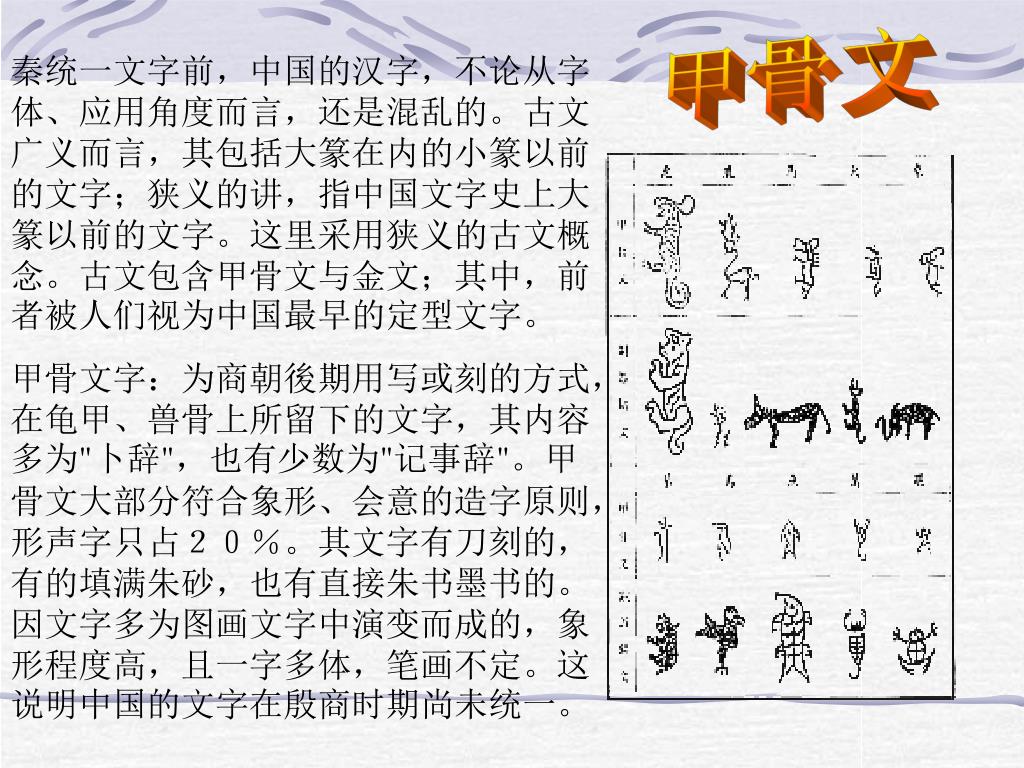 甲骨文
秦统一文字前，中国的汉字，不论从字
体、应用角度而言，还是混乱的。古文
广义而言，其包括大篆在内的小篆以前
的文字；狭义的讲，指中国文字史上大
篆以前的文字。这里采用狭义的古文概
念。古文包含甲骨文与金文；其中，前
者被人们视为中国最早的定型文字。
甲骨文字：为商朝後期用写或刻的方式，
在龟甲、兽骨上所留下的文字，其内容
多为"卜辞"，也有少数为"记事辞"。甲
骨文大部分符合象形、会意的造字原则，
形声字只占２０％。其文字有刀刻的，
有的填满朱砂，也有直接朱书墨书的。
因文字多为图画文字中演变而成的，象
形程度高，且一字多体，笔画不定。这
说明中国的文字在殷商时期尚未统一。